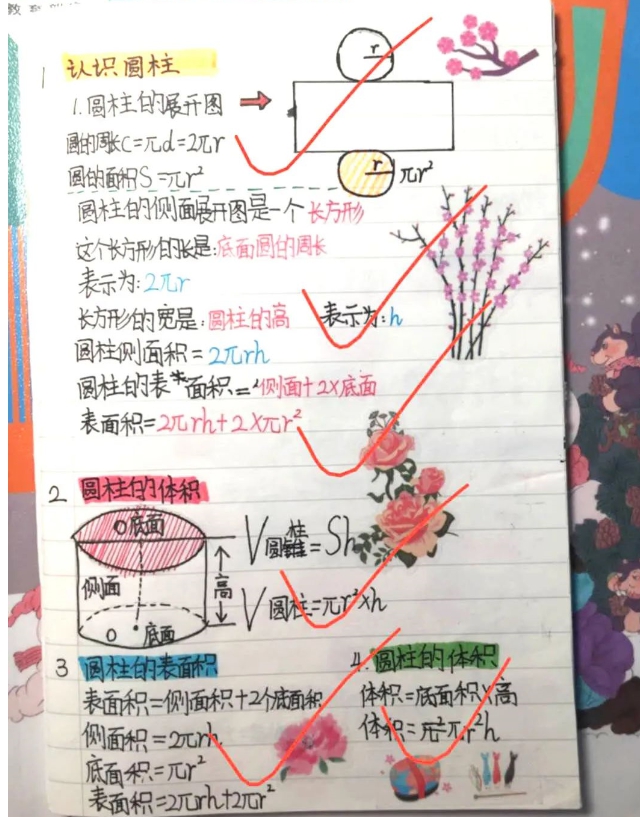 1 认识圆柱
1.圆柱的展开图
r
圆的周长C=πd=2πr
圆的面积S=πr²
r πr²
圆柱的侧面展开图是一个长方形
这个长方形的长是:底面圆的周长
表示为:2πr
长方形的宽是:圆柱的高 表示为:h
圆柱侧面积=2πrh
圆柱的表面积=侧面+2×底面
表面积=2πrh+2×πr²
2 圆柱的体积
O底面
V圆柱=Sh
侧面
高
V圆柱=πr²×h
O 底面
3 圆柱的表面积
表面积=侧面积+2个底面积
侧面积=2πrh
底面积=πr²
表面积=2πrh+2πr²
4.圆柱的体积
体积=底面积×高
体积=πr²h